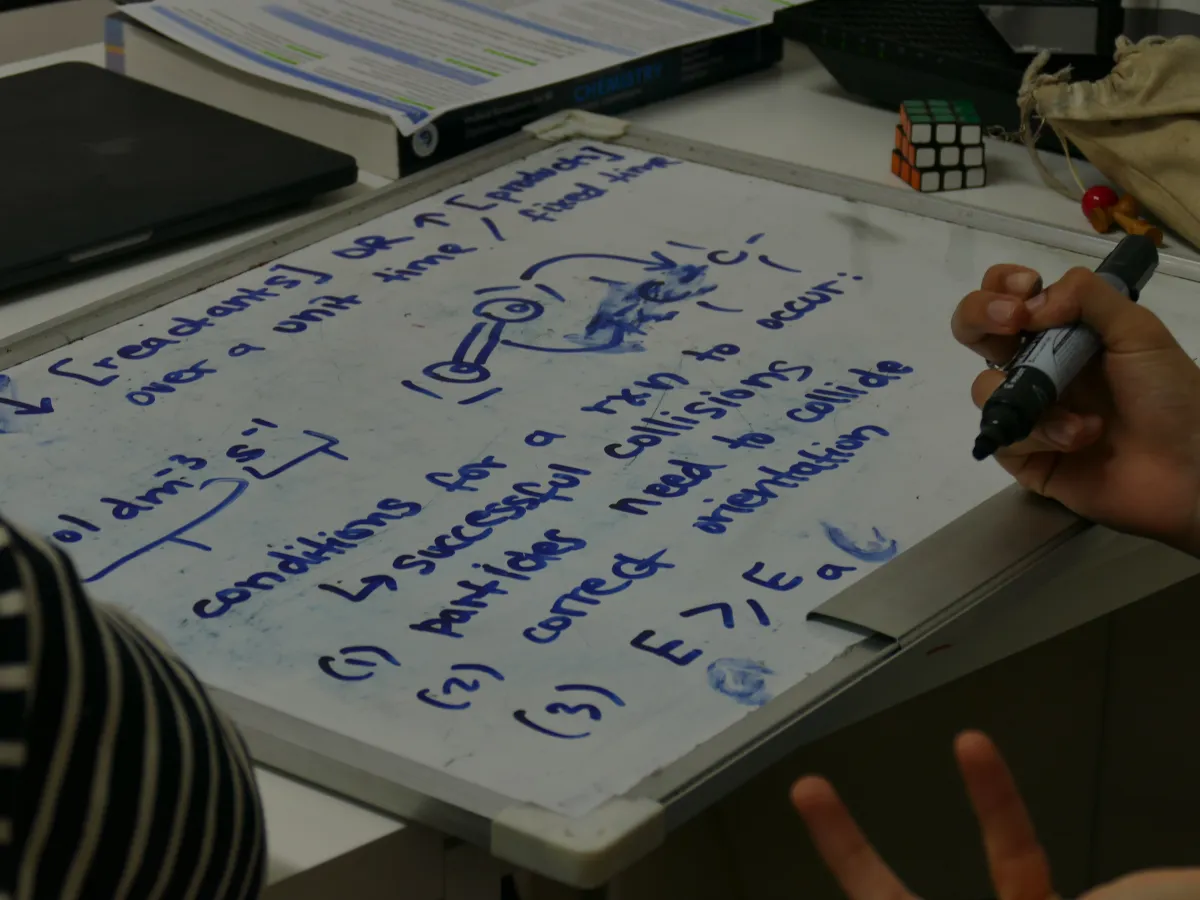 CHEMISTRY
↓ [reactants] OR ↑ [products]
over a unit time / fixed time
ol dm⁻³ s⁻¹
C
conditions for a rxn to occur:
↳ successful collisions
(1) particles need to collide
(2) correct orientation
(3) E ⩾ Ea